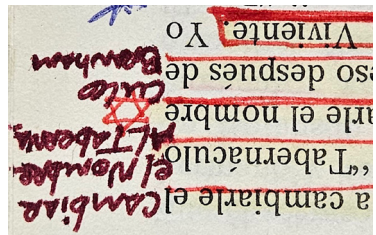 a cambiarle el
“Tabernáculo
arle el nombre
eso después de
Viviente. Yo
Cambiar
el Nombre
AL Taberna
culo
Branham